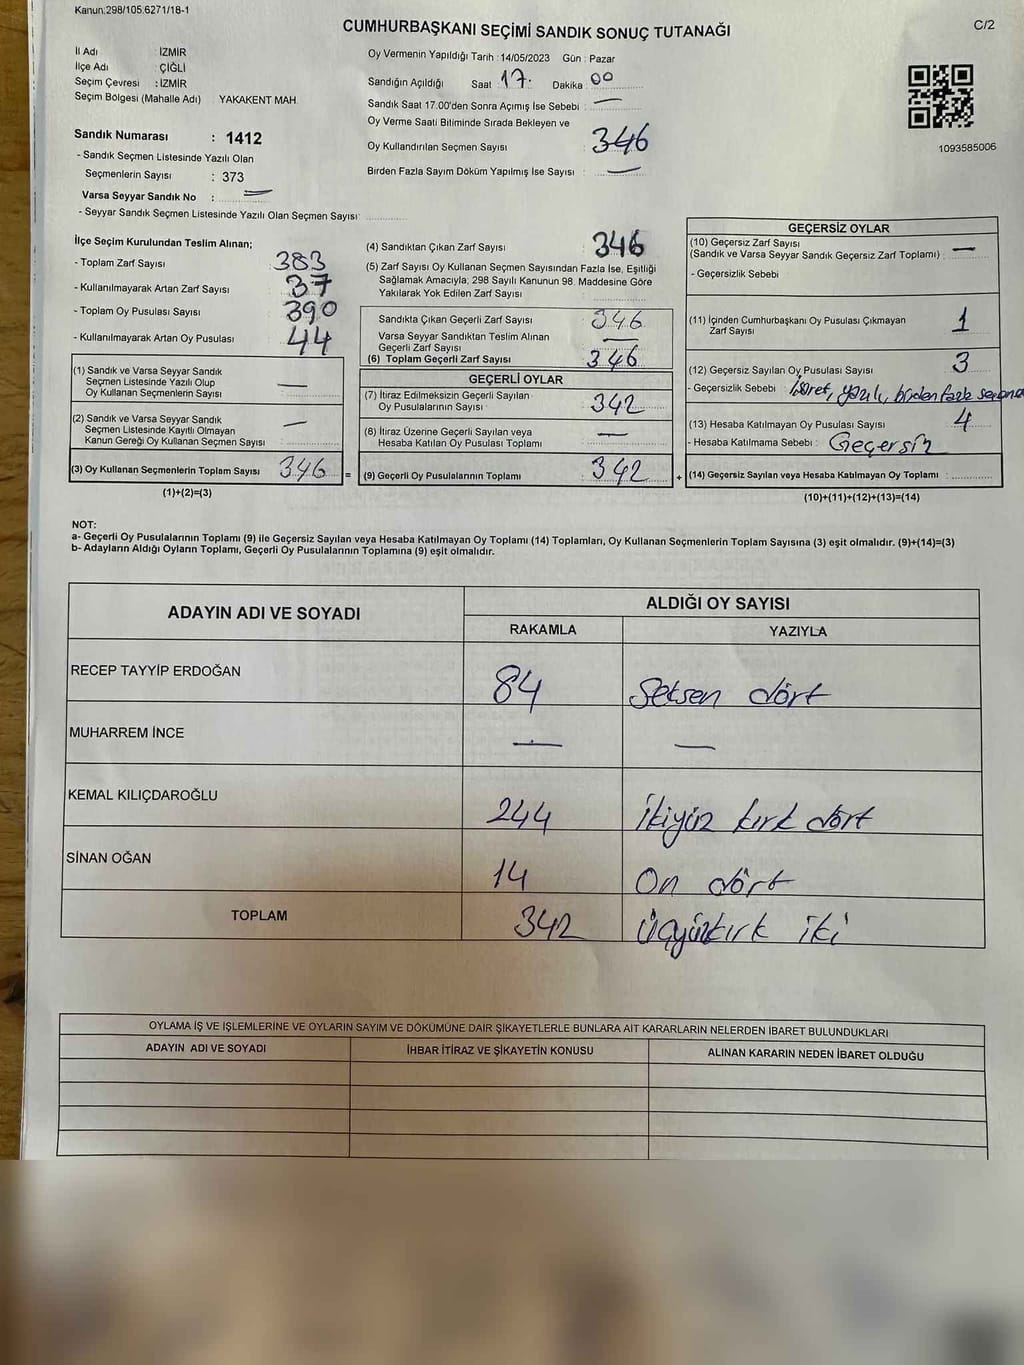 Kanun:298/105,6271/18-1
C/2
CUMHURBAŞKANI SEÇİMİ SANDIK SONUÇ TUTANAĞI
İl Adı : İZMİR
İlçe Adı : ÇİĞLİ
Seçim Çevresi : İZMİR
Seçim Bölgesi (Mahalle Adı) YAKAKENT MAH.
Sandık Numarası : 1412
- Sandık Seçmen Listesinde Yazılı Olan
Seçmenlerin Sayısı : 373
Varsa Seyyar Sandık No : —
- Seyyar Sandık Seçmen Listesinde Yazılı Olan Seçmen Sayısı:
Oy Vermenin Yapıldığı Tarih : 14/05/2023 Gün : Pazar
Sandığın Açıldığı Saat 17. Dakika 00
Sandık Saat 17.00'den Sonra Açımış İse Sebebi : —
Oy Verme Saati Bitiminde Sırada Bekleyen ve
Oy Kullandırılan Seçmen Sayısı : 346
Birden Fazla Sayım Döküm Yapılmış İse Sayısı : —
1093585006
İlçe Seçim Kurulundan Teslim Alınan;
- Toplam Zarf Sayısı : 383
- Kullanılmayarak Artan Zarf Sayısı : 37
- Toplam Oy Pusulası Sayısı : 390
- Kullanılmayarak Artan Oy Pusulası : 44
(1) Sandık ve Varsa Seyyar Sandık
Seçmen Listesinde Yazılı Olup
Oy Kullanan Seçmenlerin Sayısı : —
(2) Sandık ve Varsa Seyyar Sandık
Seçmen Listesinde Kayıtlı Olmayan
Kanun Gereği Oy Kullanan Seçmen Sayısı : —
(3) Oy Kullanan Seçmenlerin Toplam Sayısı : 346 =
(1)+(2)=(3)
(4) Sandıktan Çıkan Zarf Sayısı : 346
(5) Zarf Sayısı Oy Kullanan Seçmen Sayısından Fazla İse, Eşitliği
Sağlamak Amacıyla, 298 Sayılı Kanunun 98. Maddesine Göre
Yakılarak Yok Edilen Zarf Sayısı :
Sandıkta Çıkan Geçerli Zarf Sayısı : 346
Varsa Seyyar Sandıktan Teslim Alınan
Geçerli Zarf Sayısı : —
(6) Toplam Geçerli Zarf Sayısı : 346
GEÇERLİ OYLAR
(7) İtiraz Edilmeksizin Geçerli Sayılan
Oy Pusulalarının Sayısı : 342
(8) İtiraz Üzerine Geçerli Sayılan veya
Hesaba Katılan Oy Pusulası Toplamı : —
(9) Geçerli Oy Pusulalarının Toplamı : 342 +
GEÇERSİZ OYLAR
(10) Geçersiz Zarf Sayısı
(Sandık ve Varsa Seyyar Sandık Geçersiz Zarf Toplamı) : —
- Geçersizlik Sebebi :
(11) İçinden Cumhurbaşkanı Oy Pusulası Çıkmayan
Zarf Sayısı : 1
(12) Geçersiz Sayılan Oy Pusulası Sayısı : 3
- Geçersizlik Sebebi : İşaret, yazılı, birden fazla
(13) Hesaba Katılmayan Oy Pusulası Sayısı : 4
- Hesaba Katılmama Sebebi : Geçersiz
(14) Geçersiz Sayılan veya Hesaba Katılmayan Oy Toplamı :
(10)+(11)+(12)+(13)=(14)
NOT:
a- Geçerli Oy Pusulalarının Toplamı (9) ile Geçersiz Sayılan veya Hesaba Katılmayan Oy Toplamı (14) Toplamları, Oy Kullanan Seçmenlerin Toplam Sayısına (3) eşit olmalıdır. (9)+(14)=(3)
b- Adayların Aldığı Oyların Toplamı, Geçerli Oy Pusulalarının Toplamına (9) eşit olmalıdır.
ADAYIN ADI VE SOYADI ALDIĞI OY SAYISI
RAKAMLA YAZIYLA
RECEP TAYYİP ERDOĞAN 84 Seksen dört
MUHARREM İNCE — —
KEMAL KILIÇDAROĞLU 244 İkiyüz kırk dört
SİNAN OĞAN 14 On dört
TOPLAM 342 Üçyüzkırk iki
OYLAMA İŞ VE İŞLEMLERİNE VE OYLARIN SAYIM VE DÖKÜMÜNE DAİR ŞİKAYETLERLE BUNLARA AİT KARARLARIN NELERDEN İBARET BULUNDUKLARI
ADAYIN ADI VE SOYADI İHBAR İTİRAZ VE ŞİKAYETİN KONUSU ALINAN KARARIN NEDEN İBARET OLDUĞU